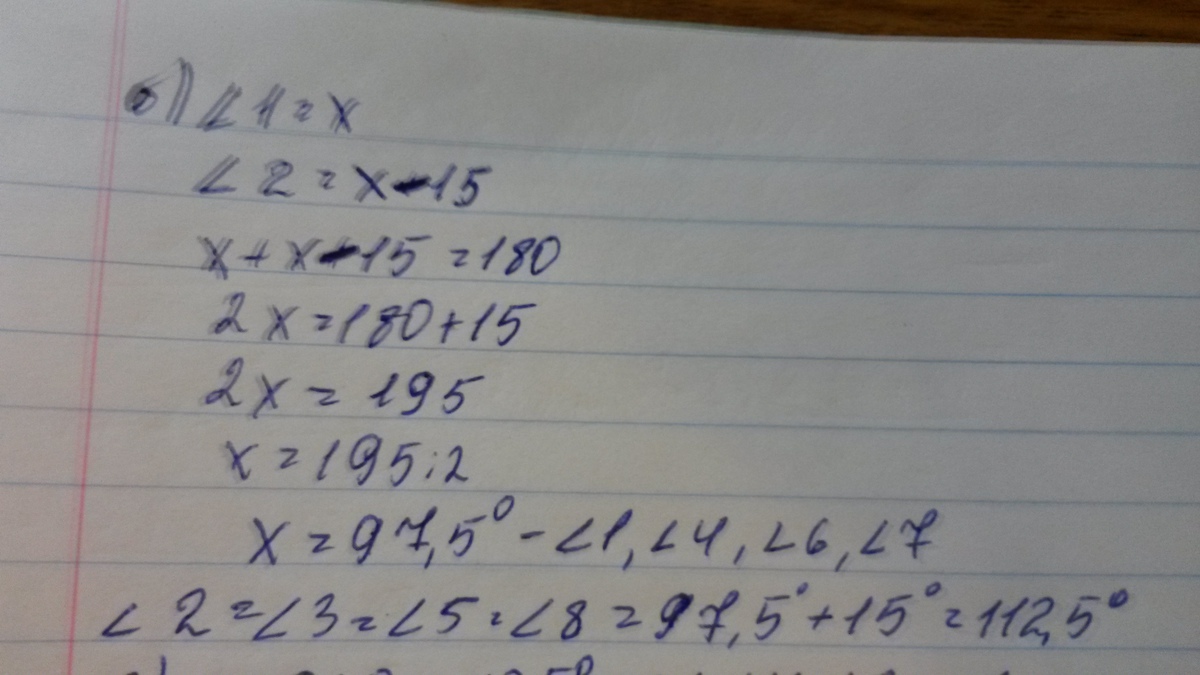 б) ∠1 = x
∠2 = x - 15
x + x - 15 = 180
2x = 180 + 15
2x = 195
x = 195 : 2
x = 97,5° - ∠1, ∠4, ∠6, ∠7
∠2 = ∠3 = ∠5 = ∠8 = 97,5° + 15° = 112,5°